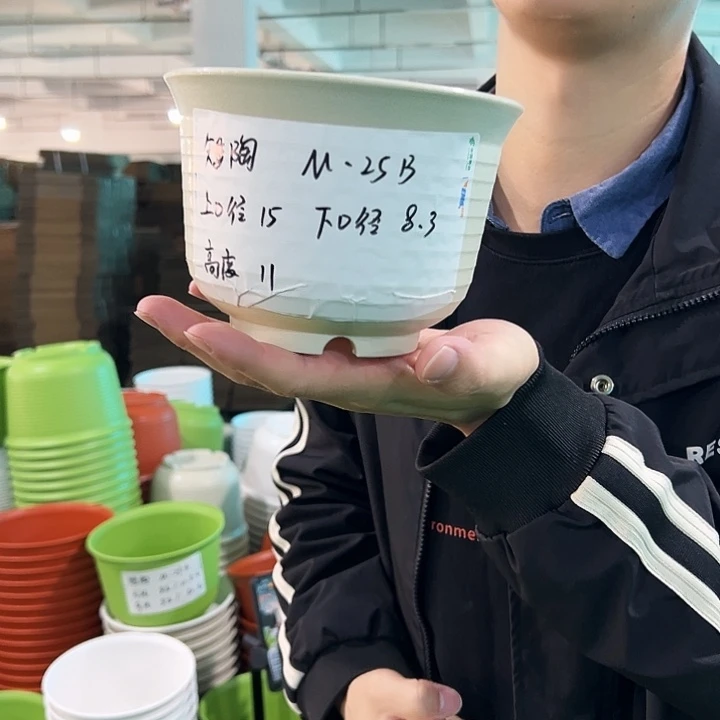 陶 M-25B
上口径 15 下口径 8.3
高度 11
RES
ronme